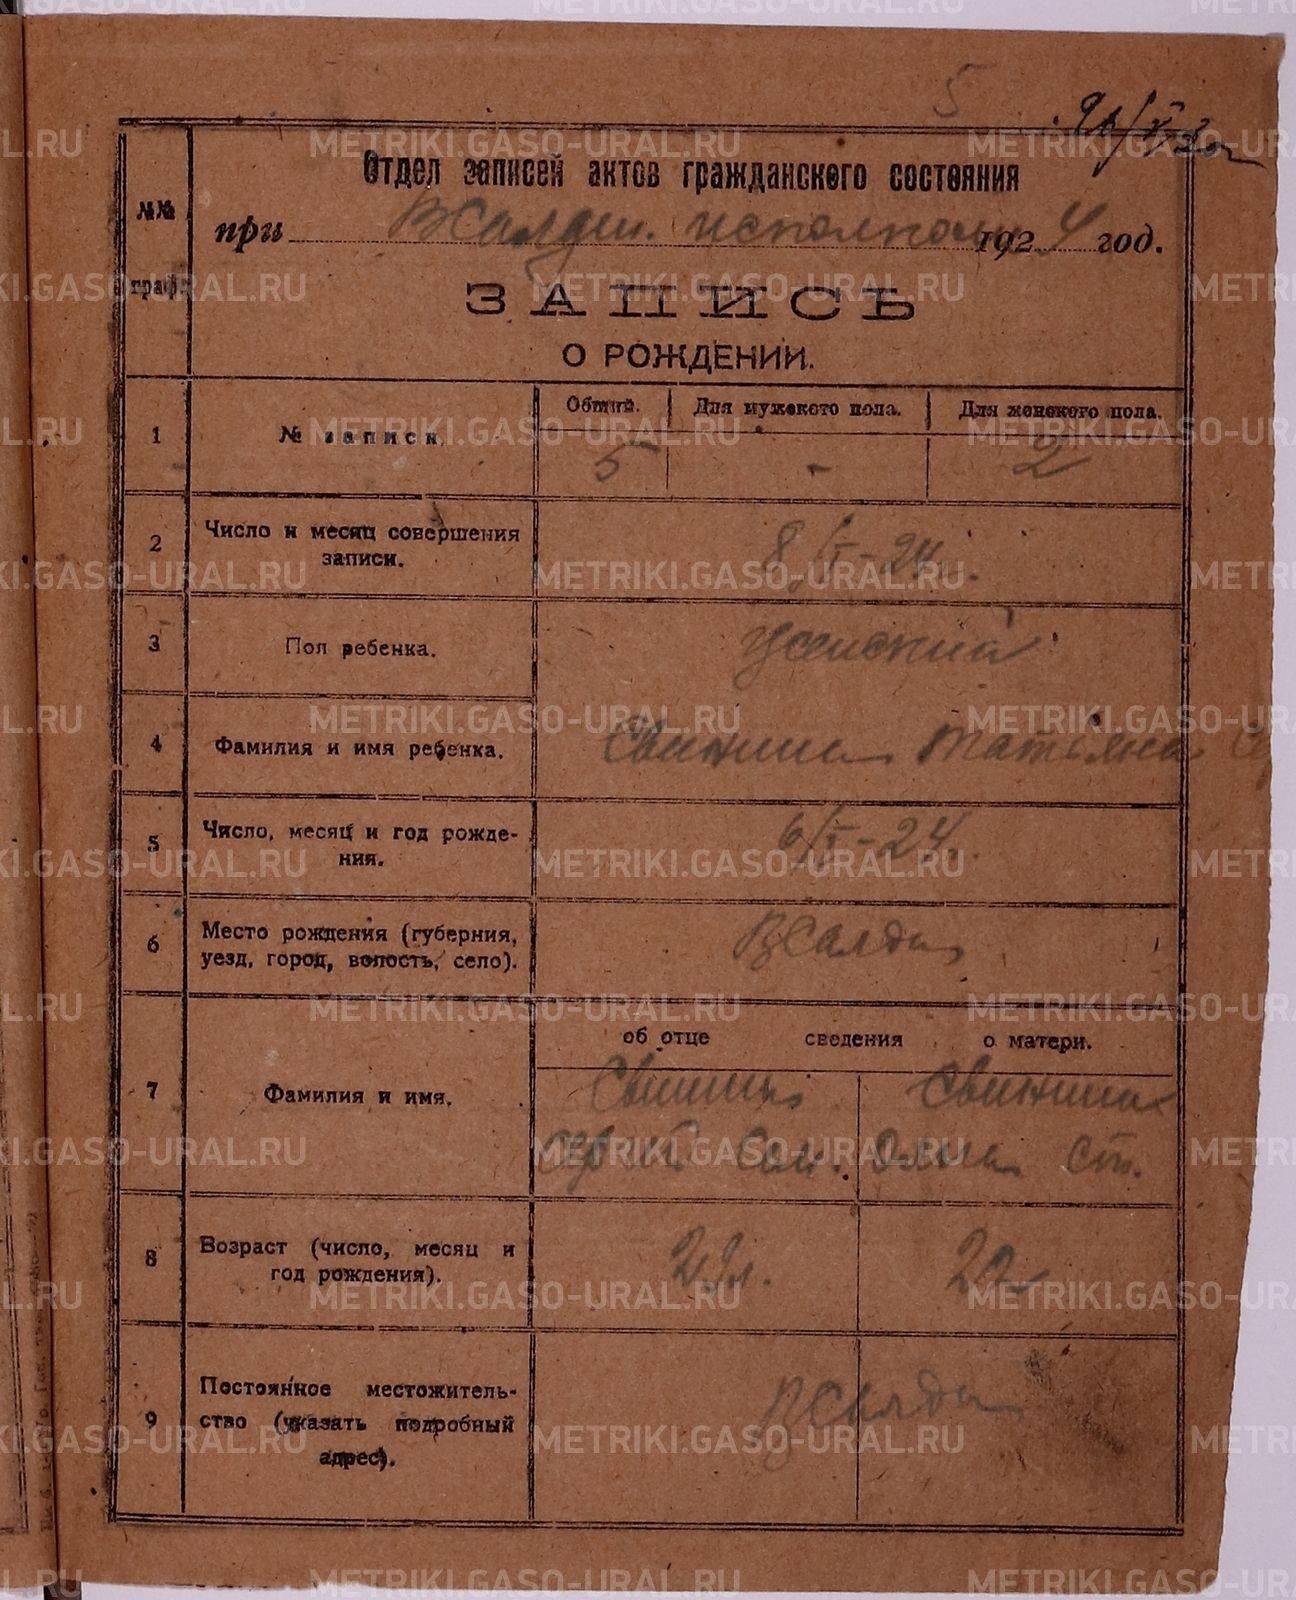 5
Отдел записей актов гражданского состояния
№№ граф.
при ВСалдин. исполкоме 1924 год.
ЗАПИСЬ
О РОЖДЕНИИ.
Общий. Для мужского пола. Для женского пола.
1 № записи. 5 - 2
2 Число и месяц совершения записи. 8/I-24.
3 Пол ребенка. Женский
4 Фамилия и имя ребенка. Свинина Татьяна
5 Число, месяц и год рождения. 6/I-24.
6 Место рождения (губерния, уезд, город, волость, село). ВСалда
об отце сведения о матери.
7 Фамилия и имя. Свинин Свинина
Сем. Анна Ст.
8 Возраст (число, месяц и год рождения).
9 Постоянное местожительство (указать подробный адрес). ВСалда
METRIKI.GASO-URAL.RU